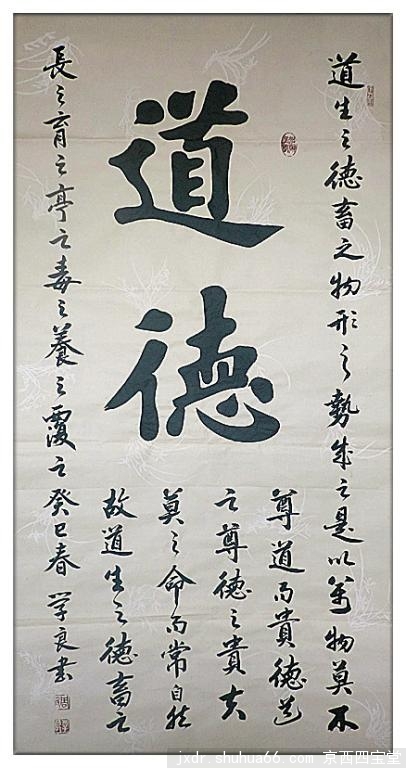 道德
道生之德畜之物形之勢成之是以萬物莫不
尊道而貴德道
之尊德之貴夫
莫之命而常自然
故道生之德畜之
長之育之亭之毒之養之覆之癸巳春 学良書
jxdr.shuhua66.com 京西四宝堂